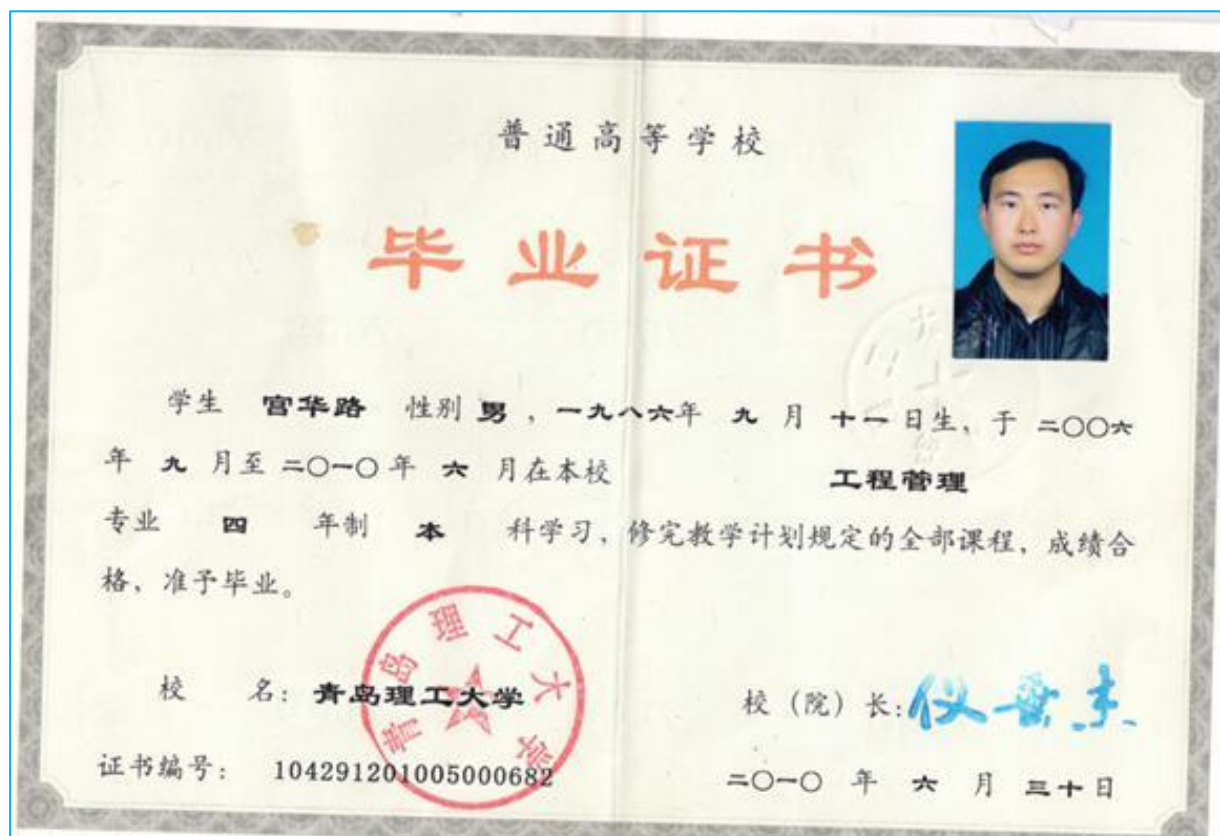 普通高等学校
毕业证书
学生 宫华路 性别 男，一九八六年 九 月 十一 日生，于 二〇〇六
年 九 月至 二〇一〇 年 六 月在本校 工程管理
专业 四 年制 本 科学习，修完教学计划规定的全部课程，成绩合
格，准予毕业。
青岛理工大学
校 名：青岛理工大学
校（院）长：
证书编号：104291201005000682
二〇一〇 年 六 月 三十日